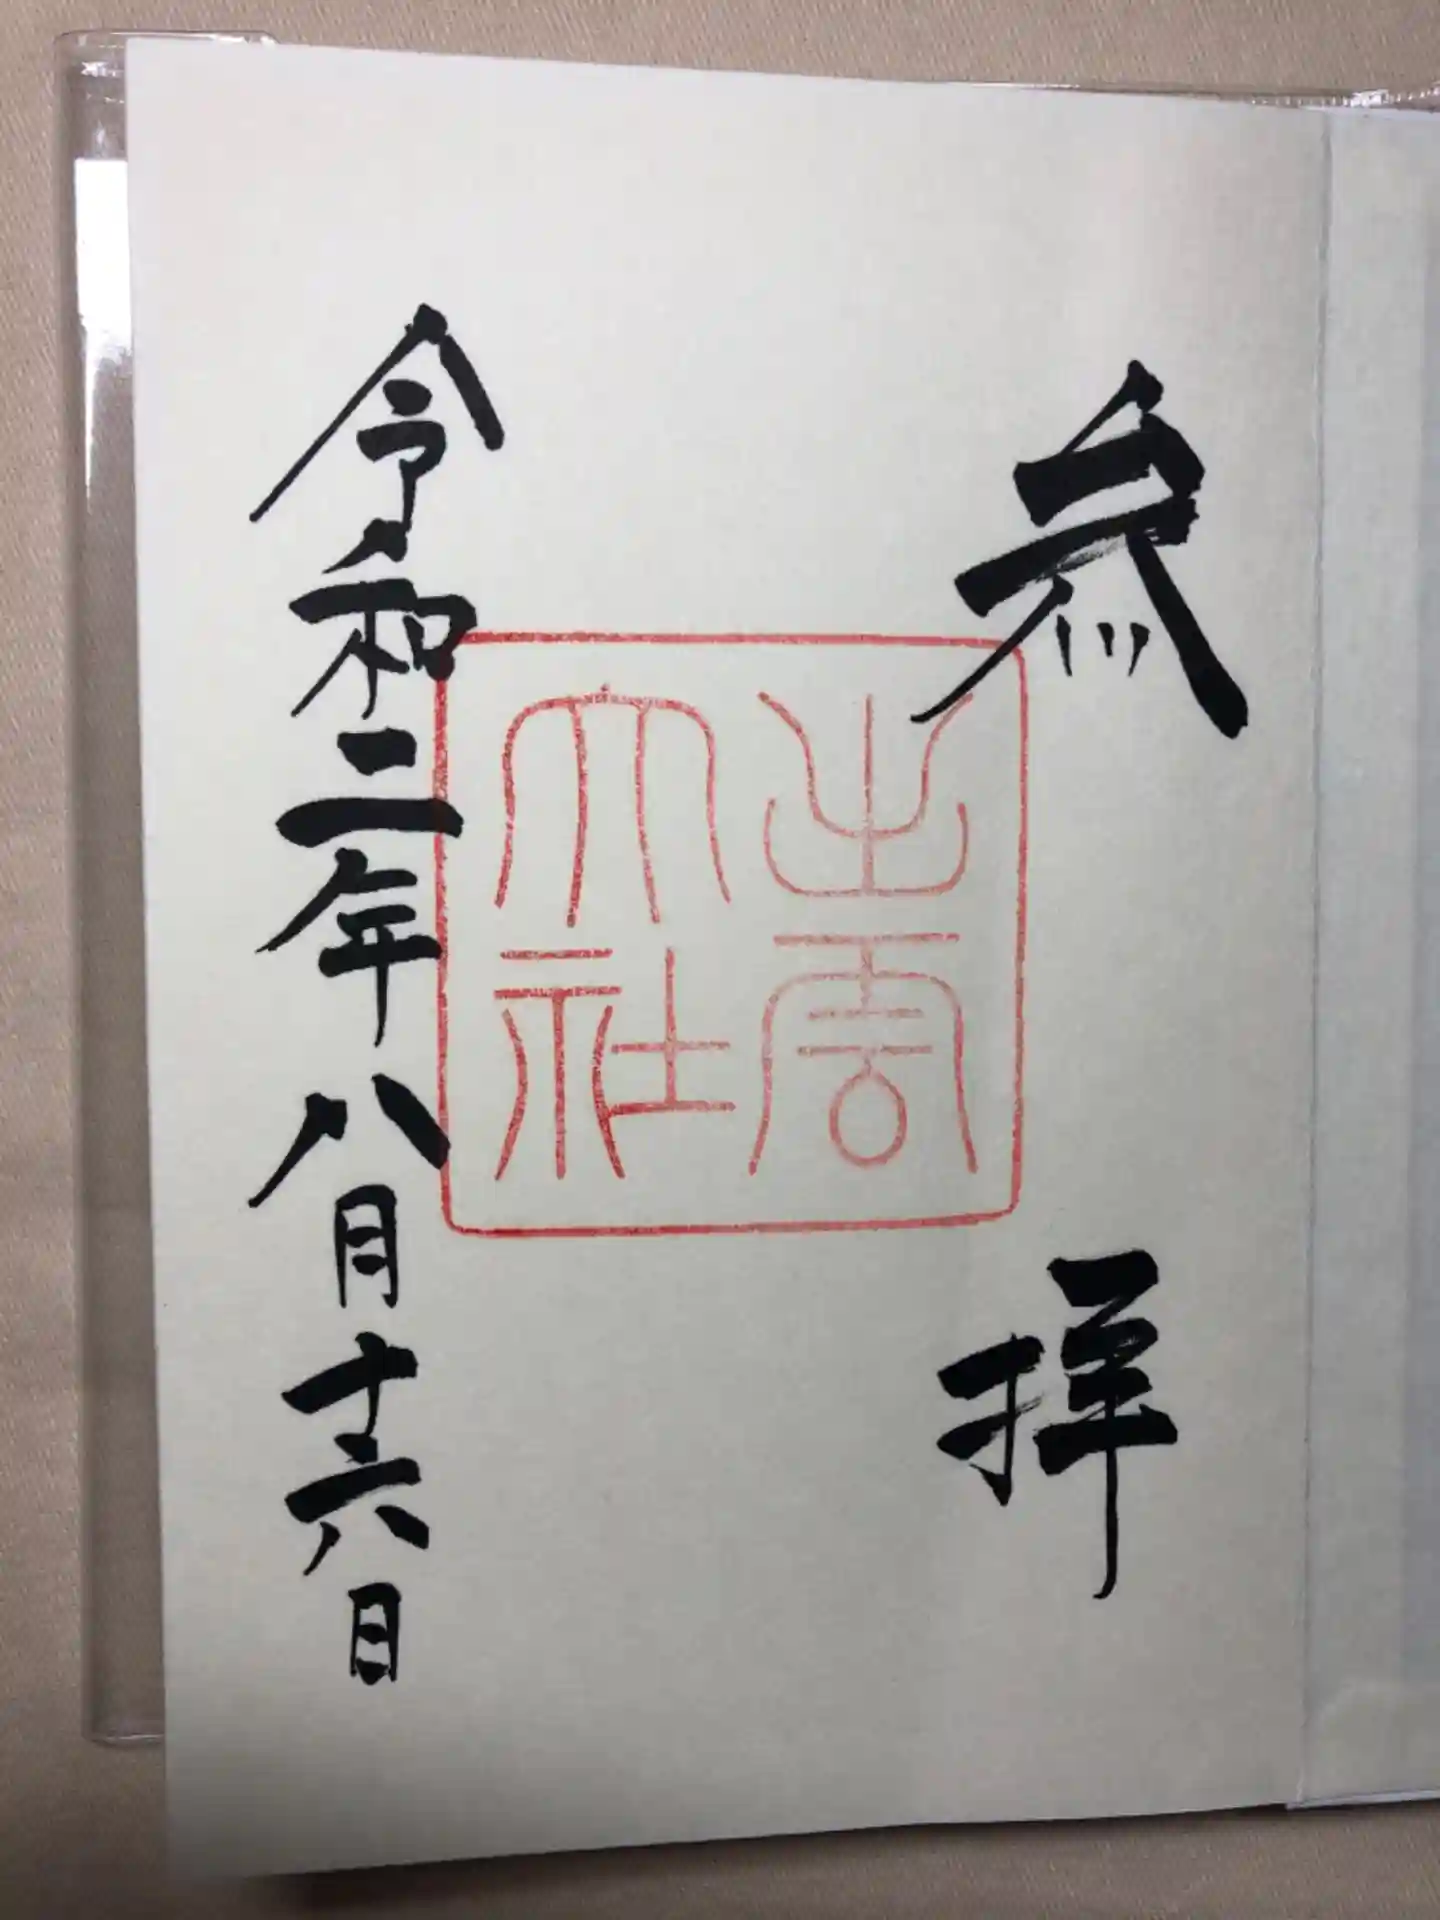 参拝
出雲
大社
令和二年八月十六日